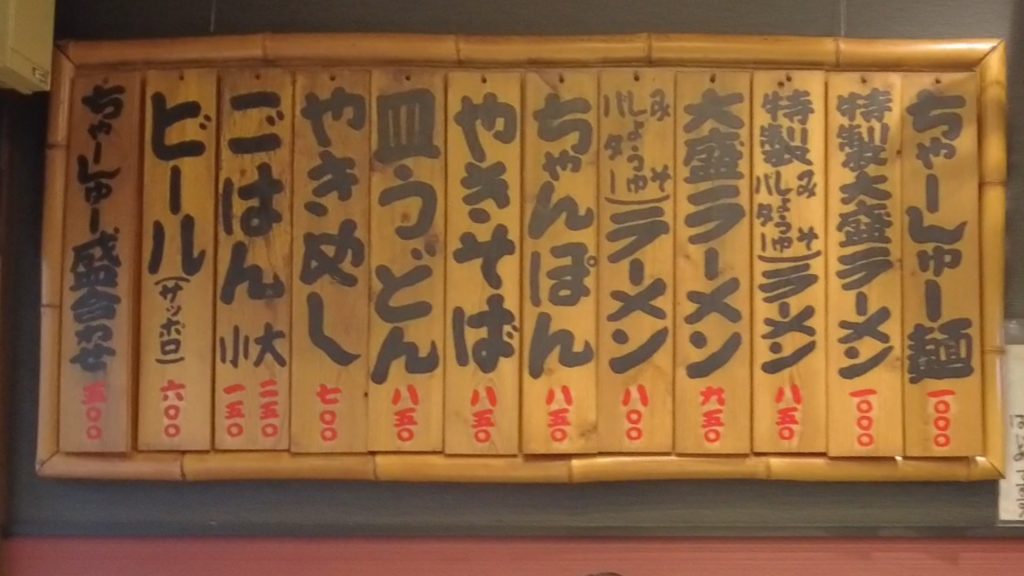 ちゃーしゅー麺
一〇〇〇
特製大盛ラーメン
一〇〇〇
特製
みそ
しょうゆ
バター
ラーメン
八五〇
大盛ラーメン
九五〇
みそ
しょうゆ
バター
ラーメン
八〇〇
ちゃんぽん
八五〇
やきそば
八五〇
皿うどん
八五〇
やきめし
七〇〇
ごはん
大
二五〇
小
一五〇
ビール(サッポロ)
六〇〇
ちゃーしゅー盛合わせ
五〇〇